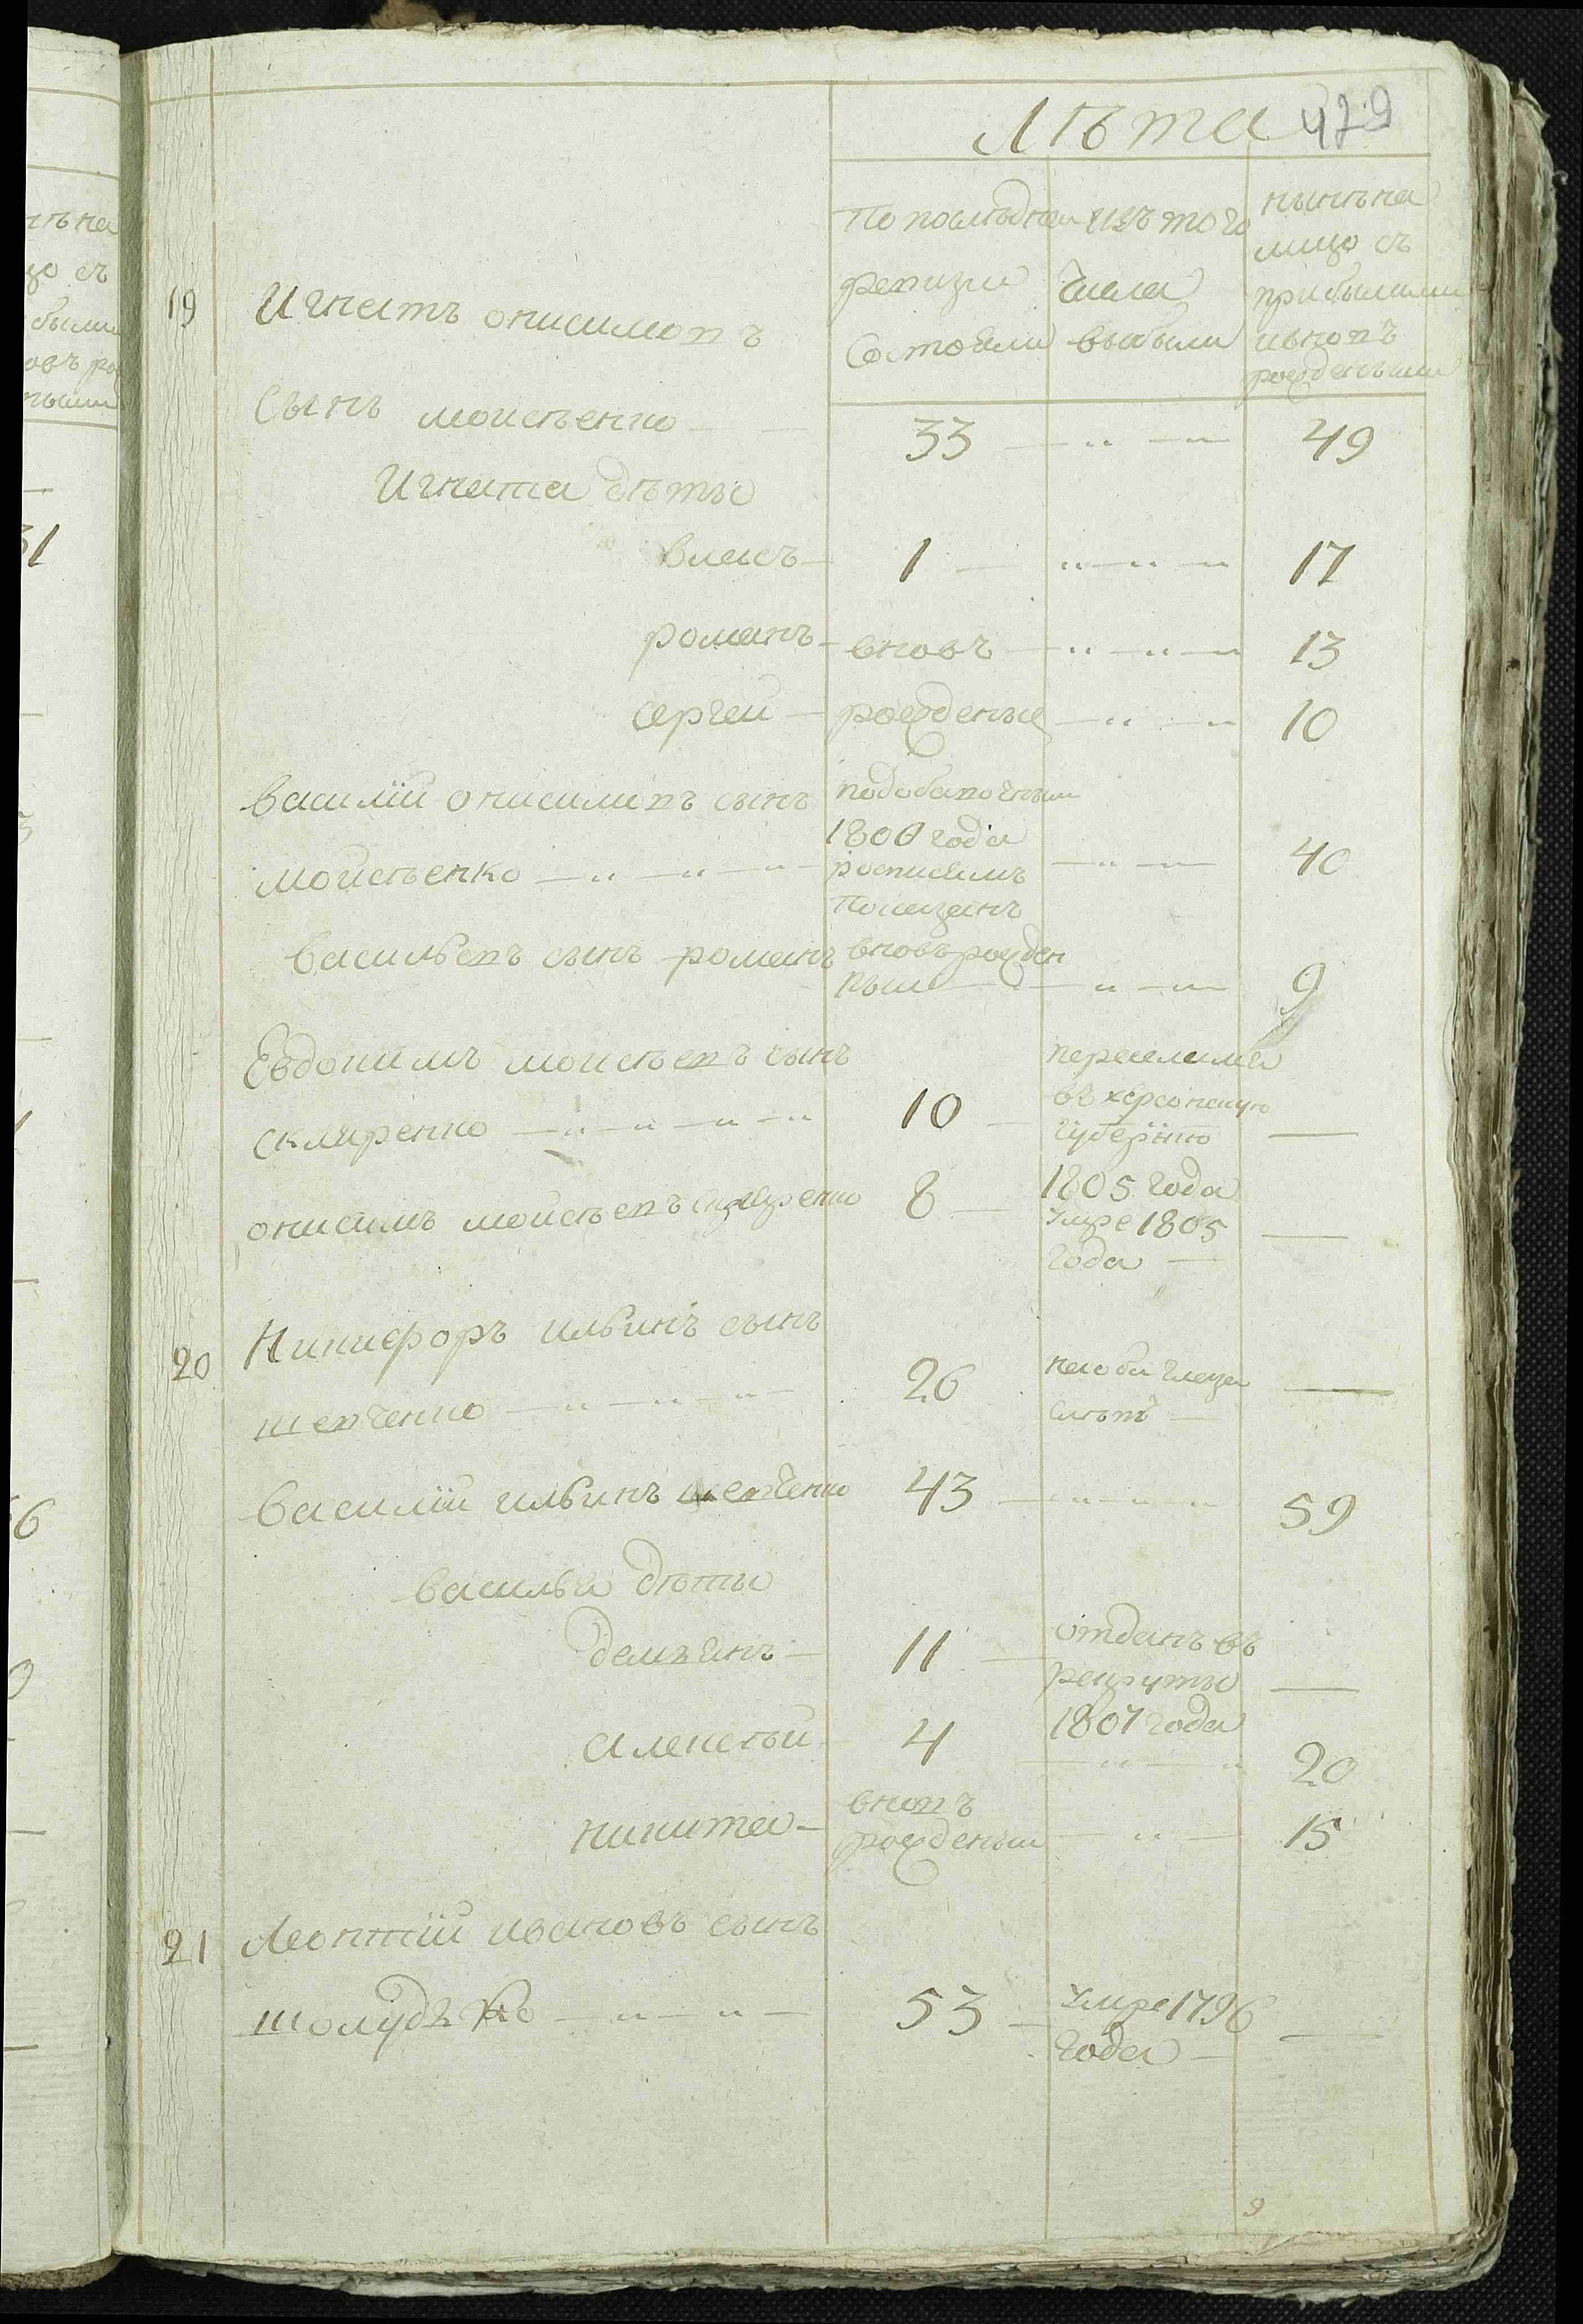 Лѣта 479
По послѣдней ревизіи состояли
изъ того числа выбыли
нынѣ на лицо съ прибылыми и вновь рожденными
19 Игнатъ онисимовъ
сынъ мойсѣенко 33 49
Игната дѣты
власъ 1 17
романъ вновъ 13
сергей рожденые 10
василій онисимовъ сынъ
мойсѣенко
1800 года
40
васильевъ сынъ романъ вновъ рожден
ный 9
Евдокимъ мойсѣевъ сынъ
скляренко 10
переселился
въ херсонскую
губернію
1805 года
онисимъ мойсѣевъ скляренко 8
умре 1805
года
20 Никифоръ ильинъ сынъ
шевченко 26
на оба глаза
слѣпъ
василій ильинъ шевченко 43 59
василья дѣты
демъянъ 11
отданъ въ
рекруты
1807 года
алексѣй 4 20
никита
вновъ
рожденый 15
21 Леонтій ивановъ сынъ
шолудъко 53
умре 1796
года
9